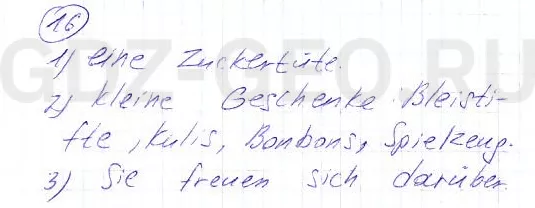 16
1) eine Zuckertüte.
2) kleine Geschenke: Bleisti-
fte, Kulis, Bonbons, Spielzeug.
3) Sie freuen sich darüber.
GDZ-GEO.RU